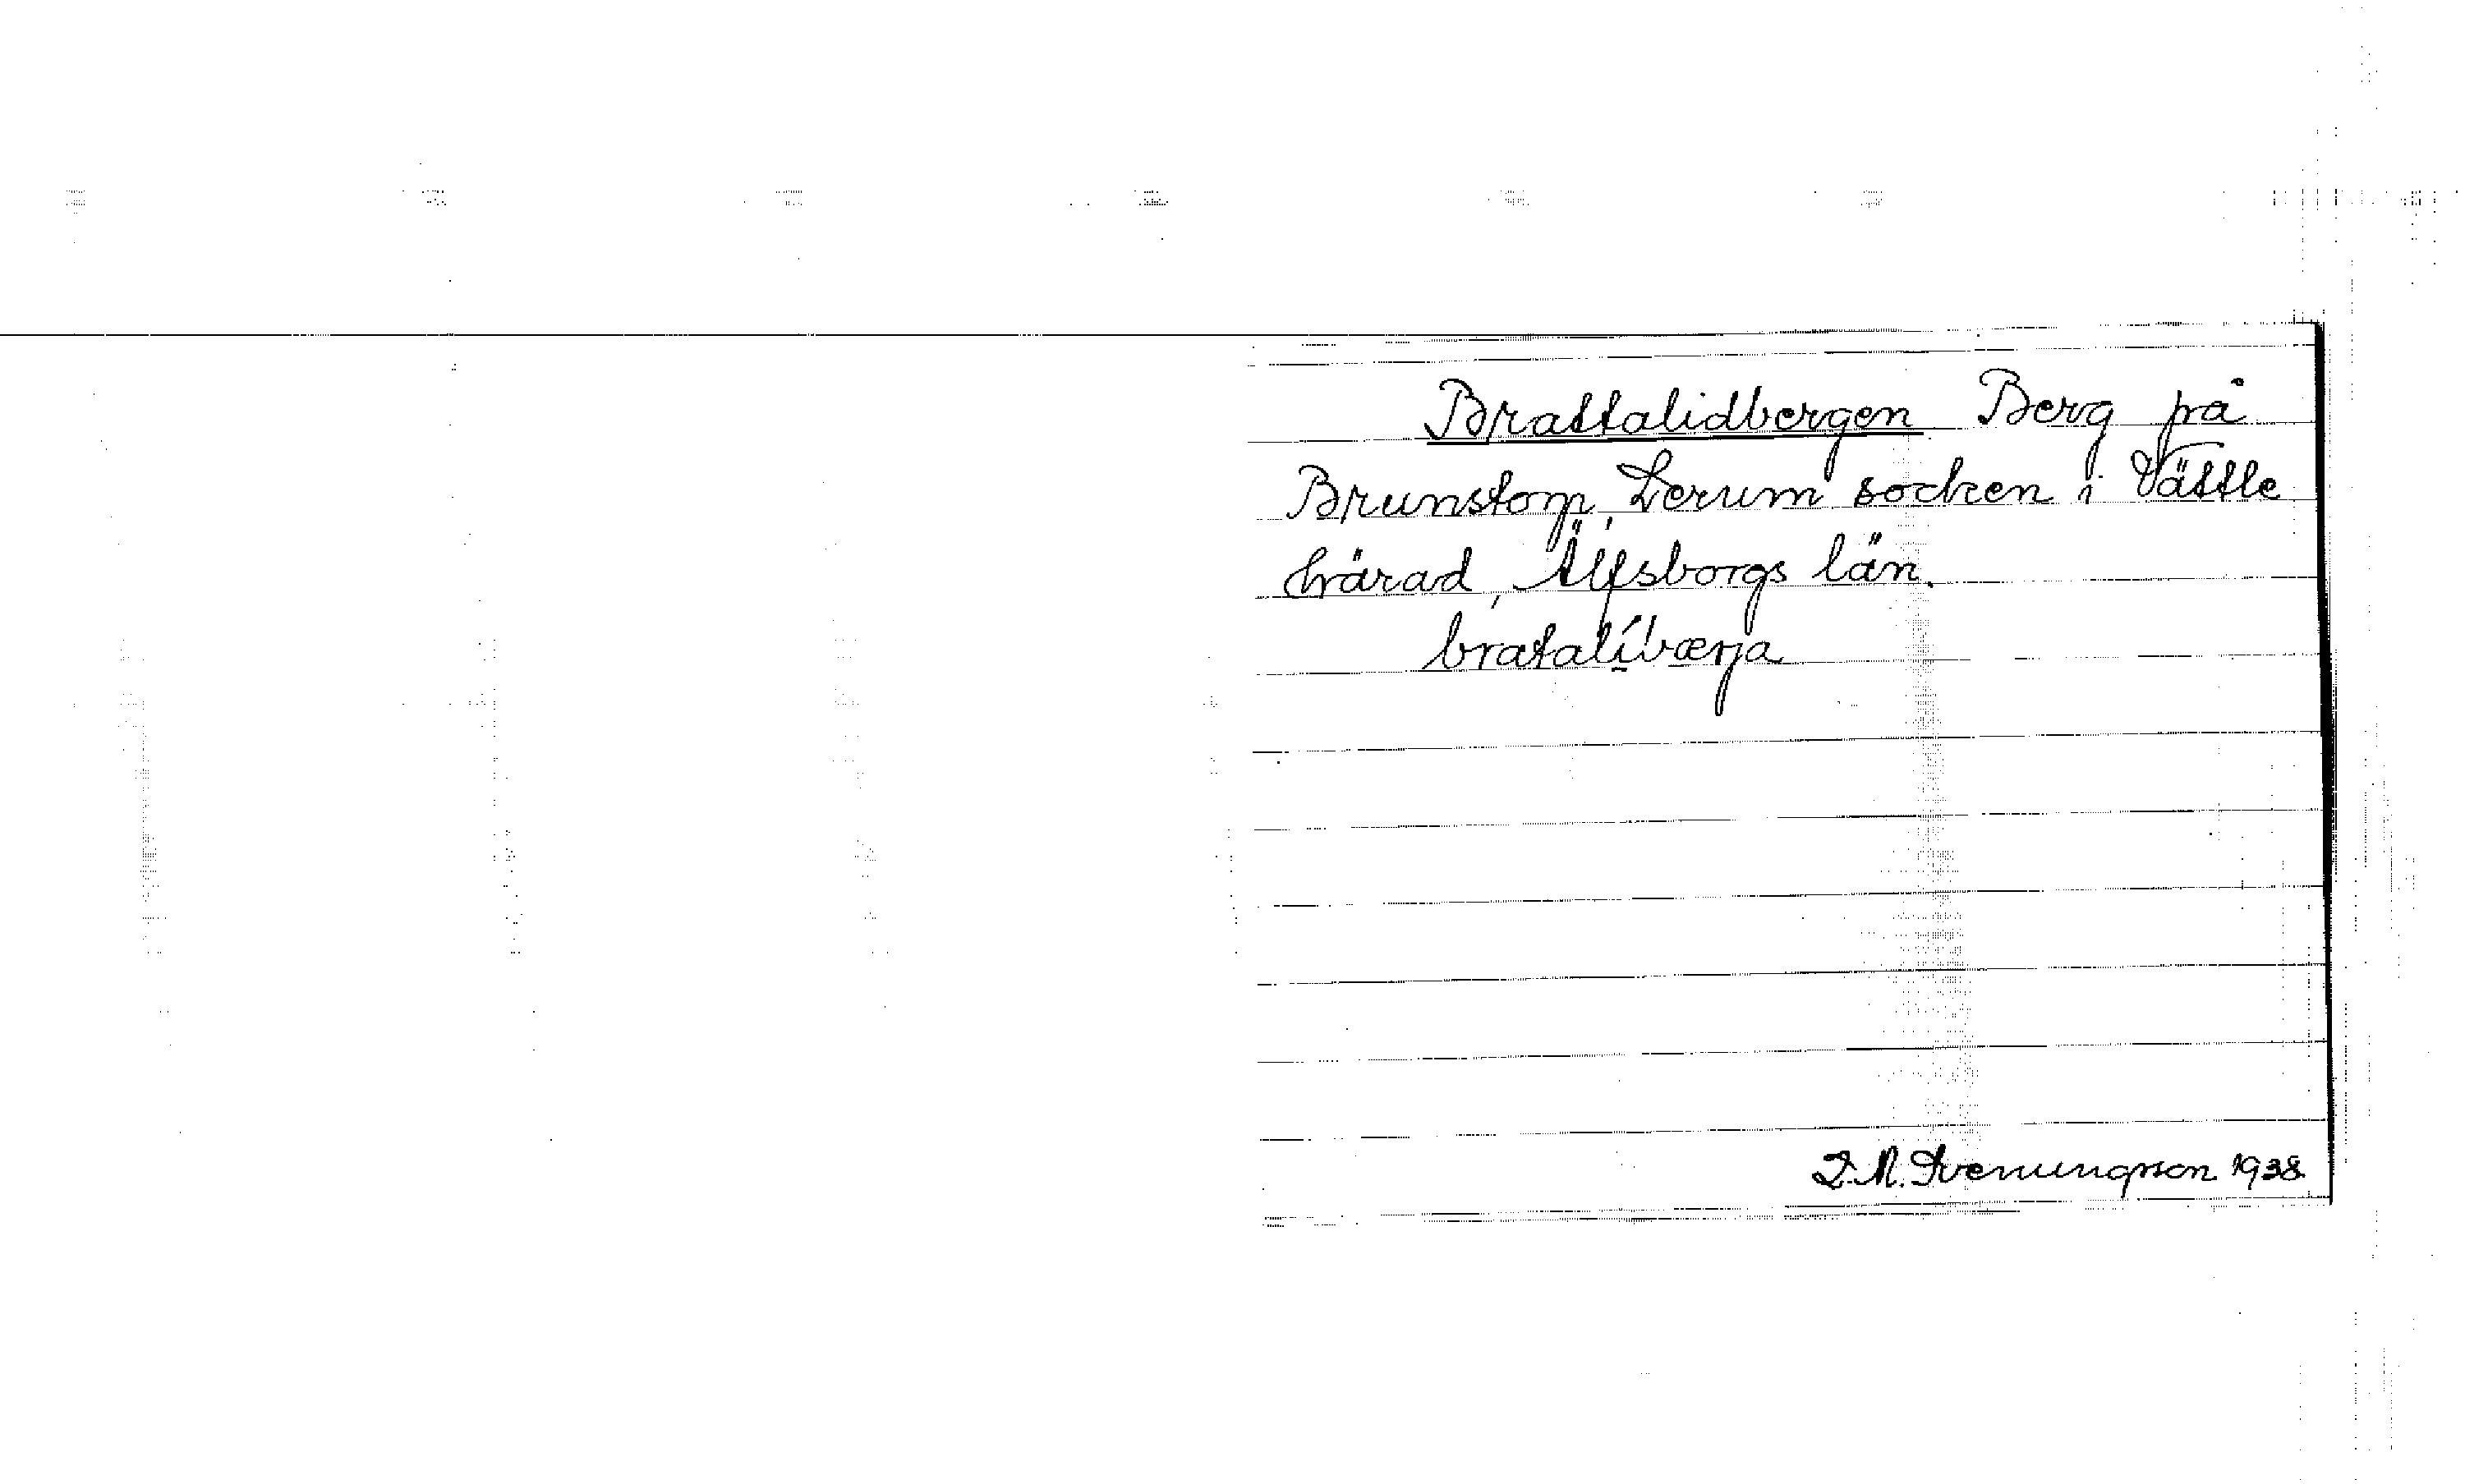 Brattalidbergen Berg på
Brunstorp, Lerum socken i Vättle
härad, Älfsborgs län.
bratalíbærja
J. M. Svenungsson 1938